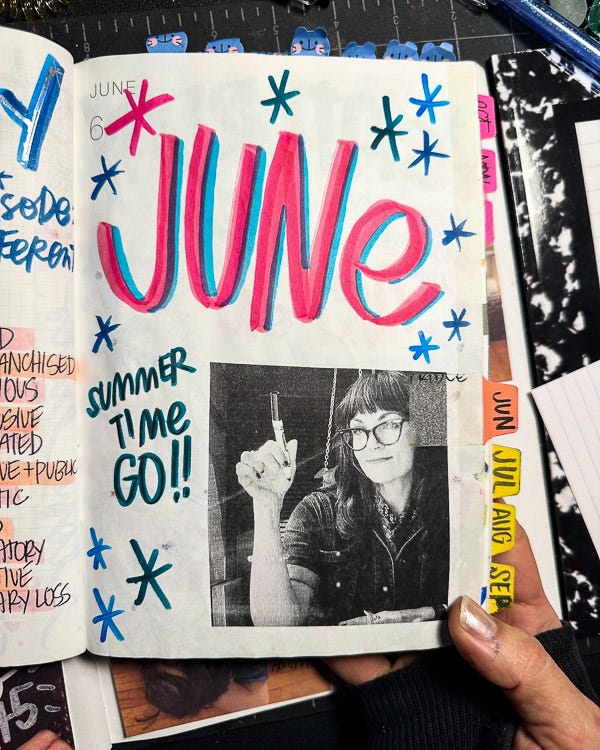 Y
SODE
FERENT
D
ANCHISED
IOUS
USIVE
ATED
VE + PUBLIC
TIC
ATORY
TIVE
ARY LOSS
JUNE
6
JUNe
SUMMER
TIMe
GO!!
OCT
NOV
JUN
JUL
AUG
SEP